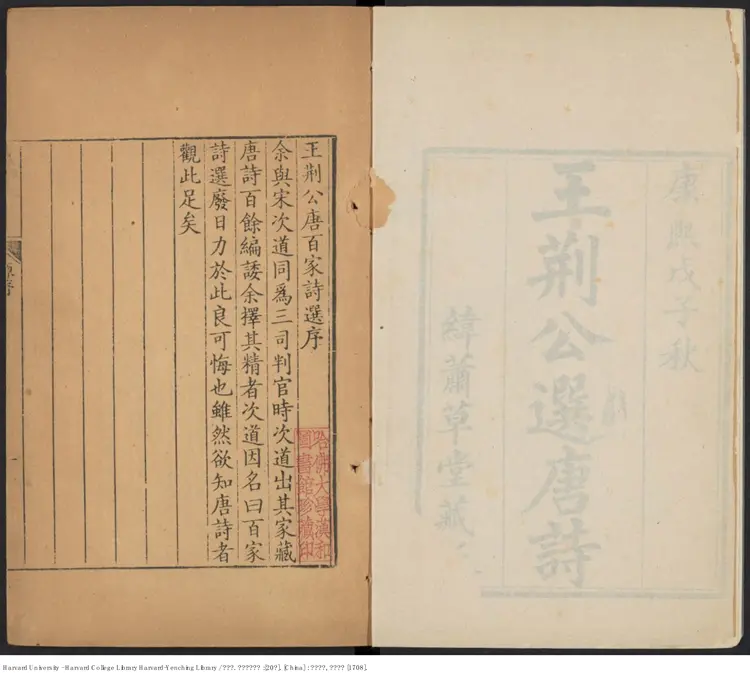 康熙戊子秋
王荊公選唐詩
緯蕭草堂藏
王荆公唐百家詩選序
余與宋次道同爲三司判官時次道出其家藏
唐詩百餘編諉余擇其精者次道因名曰百家
詩選廢日力於此良可悔也雖然欲知唐詩者
觀此足矣
哈佛大學漢和
圖書館珍藏印
原序
一
Harvard University - Harvard College Library Harvard-Yenching Library / ???. ?????? :[20?]. [China] : ????, ???? [1708].